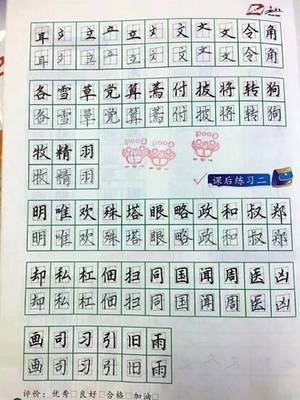 耳 立 文 令 角
耳 立 文 令 角
各 雪 草 党 算 蒿 付 披 将 转 风
各 雪 草 党 算 蒿 付 披 将 转 风
牧 精 羽
牧 精 羽
课后练习二
明 唯 欢 殊 塔 眼 略 政 和 叔 郑
明 唯 欢 殊 塔 眼 略 政 和 叔 郑
却 私 杠 佃 扫 同 国 闻 周 医 凶
却 私 杠 佃 扫 同 国 闻 周 医 凶
画 司 习 引 旧 雨
画 司 习 引 旧 雨
评价：优秀□良好□合格□加油□